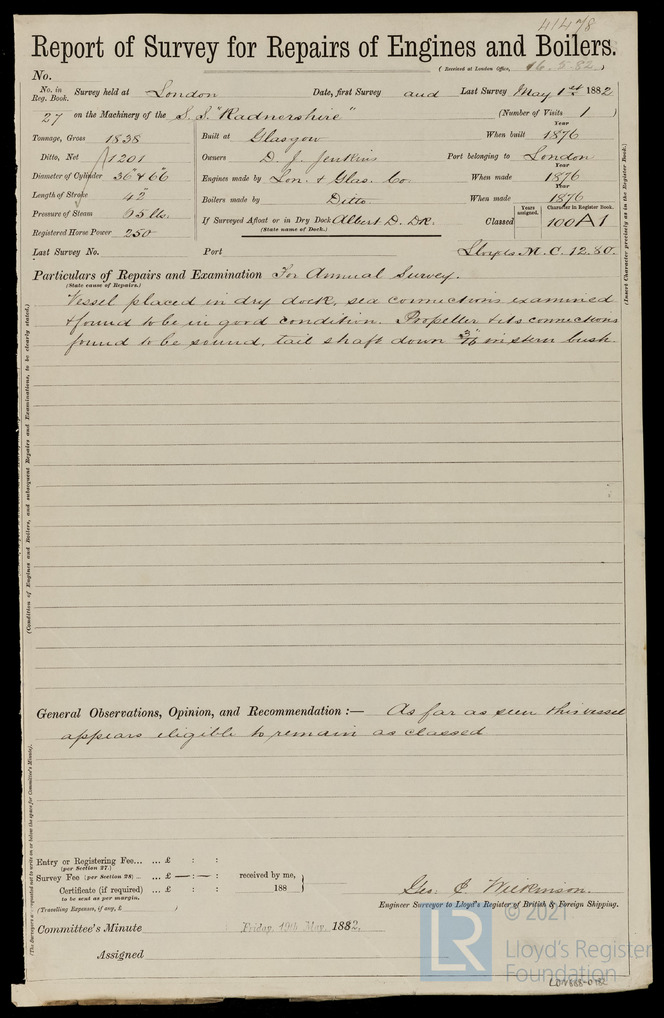 41478
Report of Survey for Repairs of Engines and Boilers.
(Received at London Office, 16.5.82.)
No.
No. in Reg. Book. Survey held at London Date, first Survey and Last Survey May 1st 1882
27 on the Machinery of the S.S. "Radnorshire" (Number of Visits 1)
Tonnage, Gross 1838 Built at Glasgow When built Year 1876
Ditto, Net 1201 Owners D. J. Jenkins Port belonging to London
Diameter of Cylinder 36" & 66" Engines made by Lon. & Glas. Co. When made Year 1876
Length of Stroke 42" Boilers made by Ditto When made Year 1876
Pressure of Steam 65 lbs. If Surveyed Afloat or in Dry Dock Albert D. Dk. Classed Years assigned. Character in Register Book. 100A1
(State name of Dock.)
Registered Horse Power 250
Last Survey No. Port Lloyds M.C. 12.80.
Particulars of Repairs and Examination For Annual Survey.
(State cause of Repairs.)
Vessel placed in dry dock, sea connections examined
& found to be in good condition. Propeller & its connections
found to be sound, tail shaft down 3/16" in stern bush
(Insert Character precisely as in the Register Book.)
(Condition of Engines and Boilers, and subsequent Repairs and Examinations, to be clearly stated.)
General Observations, Opinion, and Recommendation :— As far as seen this vessel
appears eligible to remain as classed
(The Surveyors are requested not to write on or below the space for Committee's Minute.)
Entry or Registering Fee... ... £ : :
(per Section 27.)
Survey Fee (per Section 28) ... ... £ — : — : received by me,
Certificate (if required) ... £ : : 188
to be sent as per margin.
(Travelling Expenses, if any, £ )
Geo. C. Wilkinson.
Engineer Surveyor to Lloyd's Register of British & Foreign Shipping.
Committee's Minute Friday, 19th May, 1882.
Assigned
LR © 2021
Lloyd's Register
Foundation
LDN868-0782